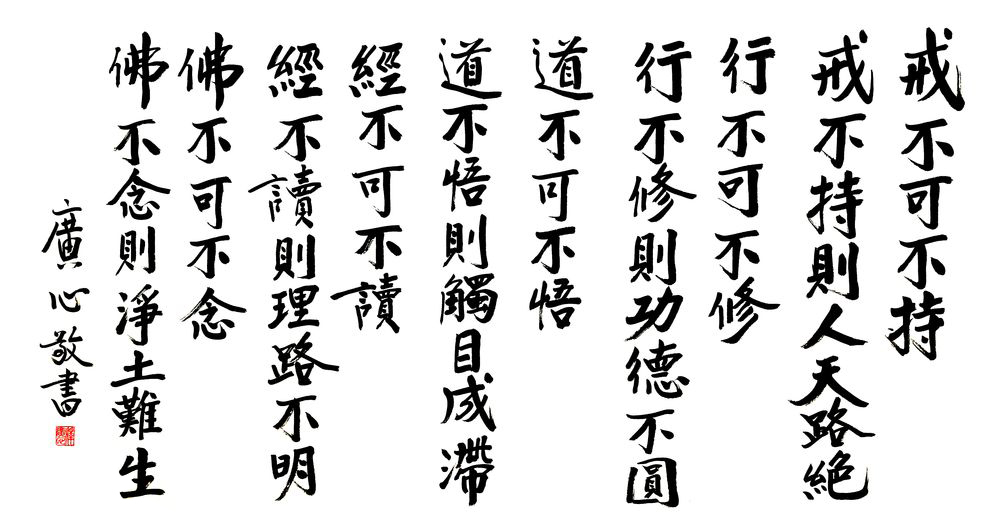 戒不可不持
戒不持則人天路絕
行不可不修
行不修則功德不圓
道不可不悟
道不悟則觸目成滯
經不可不讀
經不讀則理路不明
佛不可不念
佛不念則淨土難生
廣心敬書